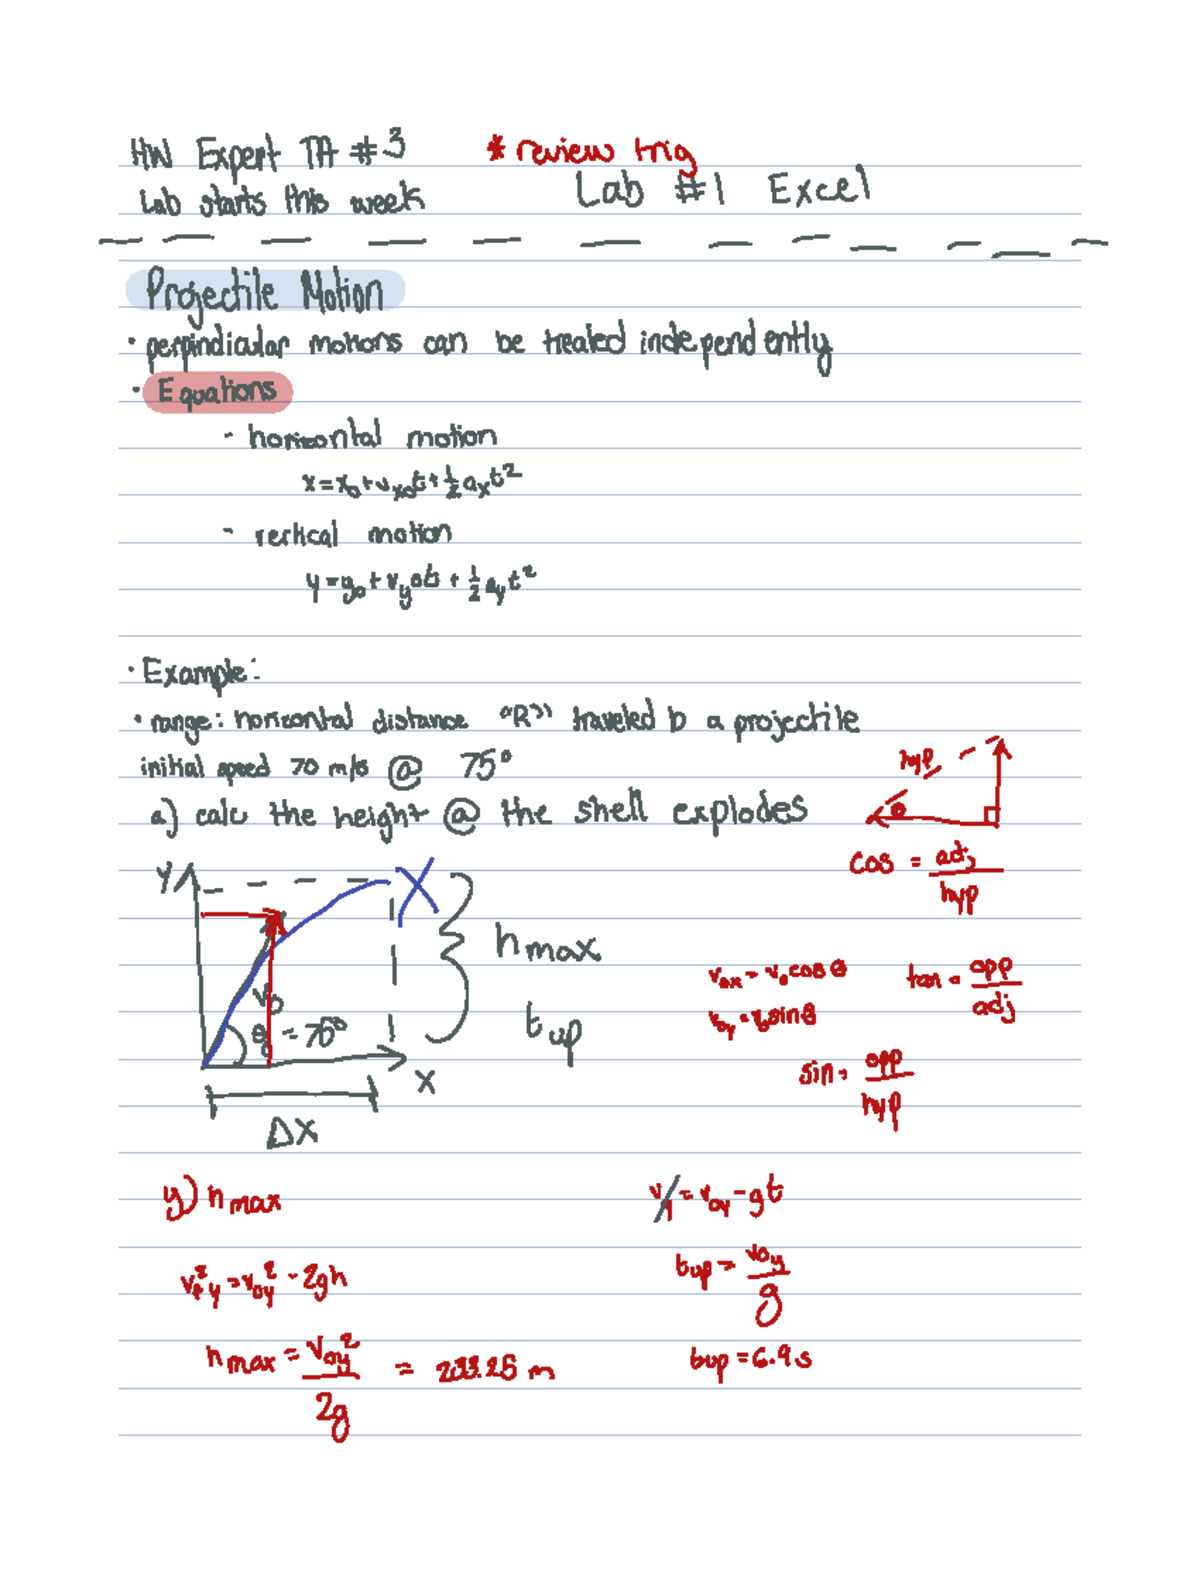 HW Expert TA #3 * review trig
Lab starts this week Lab #1 Excel
Projectile Motion
· perpindicular motions can be treated independently
· Equations
- horizontal motion
x = x₀ + vₓ₀t + ½ aₓt²
- vertical motion
y = y₀ + v_y0t + ½ a_y t²
· Example:
· range: horizontal distance "R" traveled b a projectile
initial speed 70 m/s @ 75°
a) calc the height @ the shell explodes
hyp
θ
cos = adj/hyp
y
h max
v₀
θ = 75°
t up
x
Δx
v₀ₓ = v₀ cos θ
tan = opp/adj
v₀y = v₀ sin θ
sin = opp/hyp
y) h max
v_y = v₀y - gt
v_f²y = v₀y² - 2gh
t up = v₀y/g
h max = v₀y²/2g = m
t up = 6.9 s